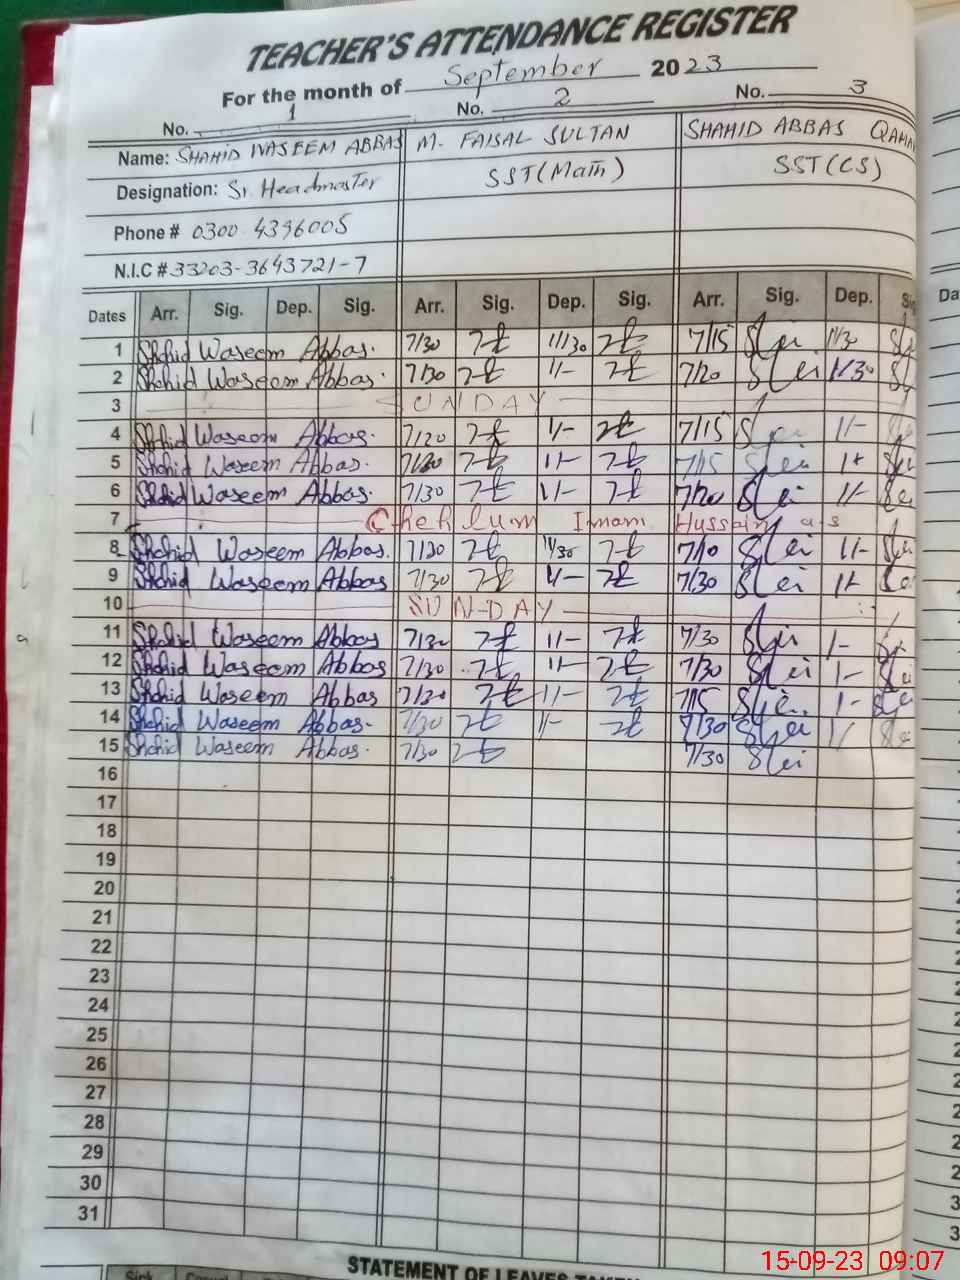 TEACHER'S ATTENDANCE REGISTER
For the month of September 2023
No. 1 No. 2 No. 3
Name: SHAHID WASEEM ABBAS M. FAISAL SULTAN SHAHID ABBAS
Designation: Sr. Headmaster SST(Math) SST(CS)
Phone # 0300 4396005
N.I.C # 33203-3643721-7
Dates Arr. Sig. Dep. Sig. Arr. Sig. Dep. Sig. Arr. Sig. Dep.
1 Shahid Waseem Abbas. 7/30 11/30 7/15 11/30
2 Shahid Waseem Abbas. 7/30 11/- 7/20 11/30
3 SUNDAY
4 Shahid Waseem Abbas. 7/20 11/- 7/15 11-
5 Shahid Waseem Abbas. 7/30 11- 7/15
6 Shahid Waseem Abbas. 7/30 11- 7/20 11-
7 Chehlum Imam Hussain a s
8 Shahid Waseem Abbas. 7/30 11/30 7/10 11-
9 Shahid Waseem Abbas 7/30 11- 7/30
10 SUN-DAY
11 Shahid Waseem Abbas 7/30 11- 7/30 1-
12 Shahid Waseem Abbas 7/30 11- 7/30 1-
13 Shahid Waseem Abbas 7/30 11- 7/15 1-
14 Shahid Waseem Abbas. 7/30 11- 7/30
15 Shahid Waseem Abbas. 7/30 7/30
16
17
18
19
20
21
22
23
24
25
26
27
28
29
30
31
STATEMENT OF LEAVES TAKEN
15-09-23 09:07